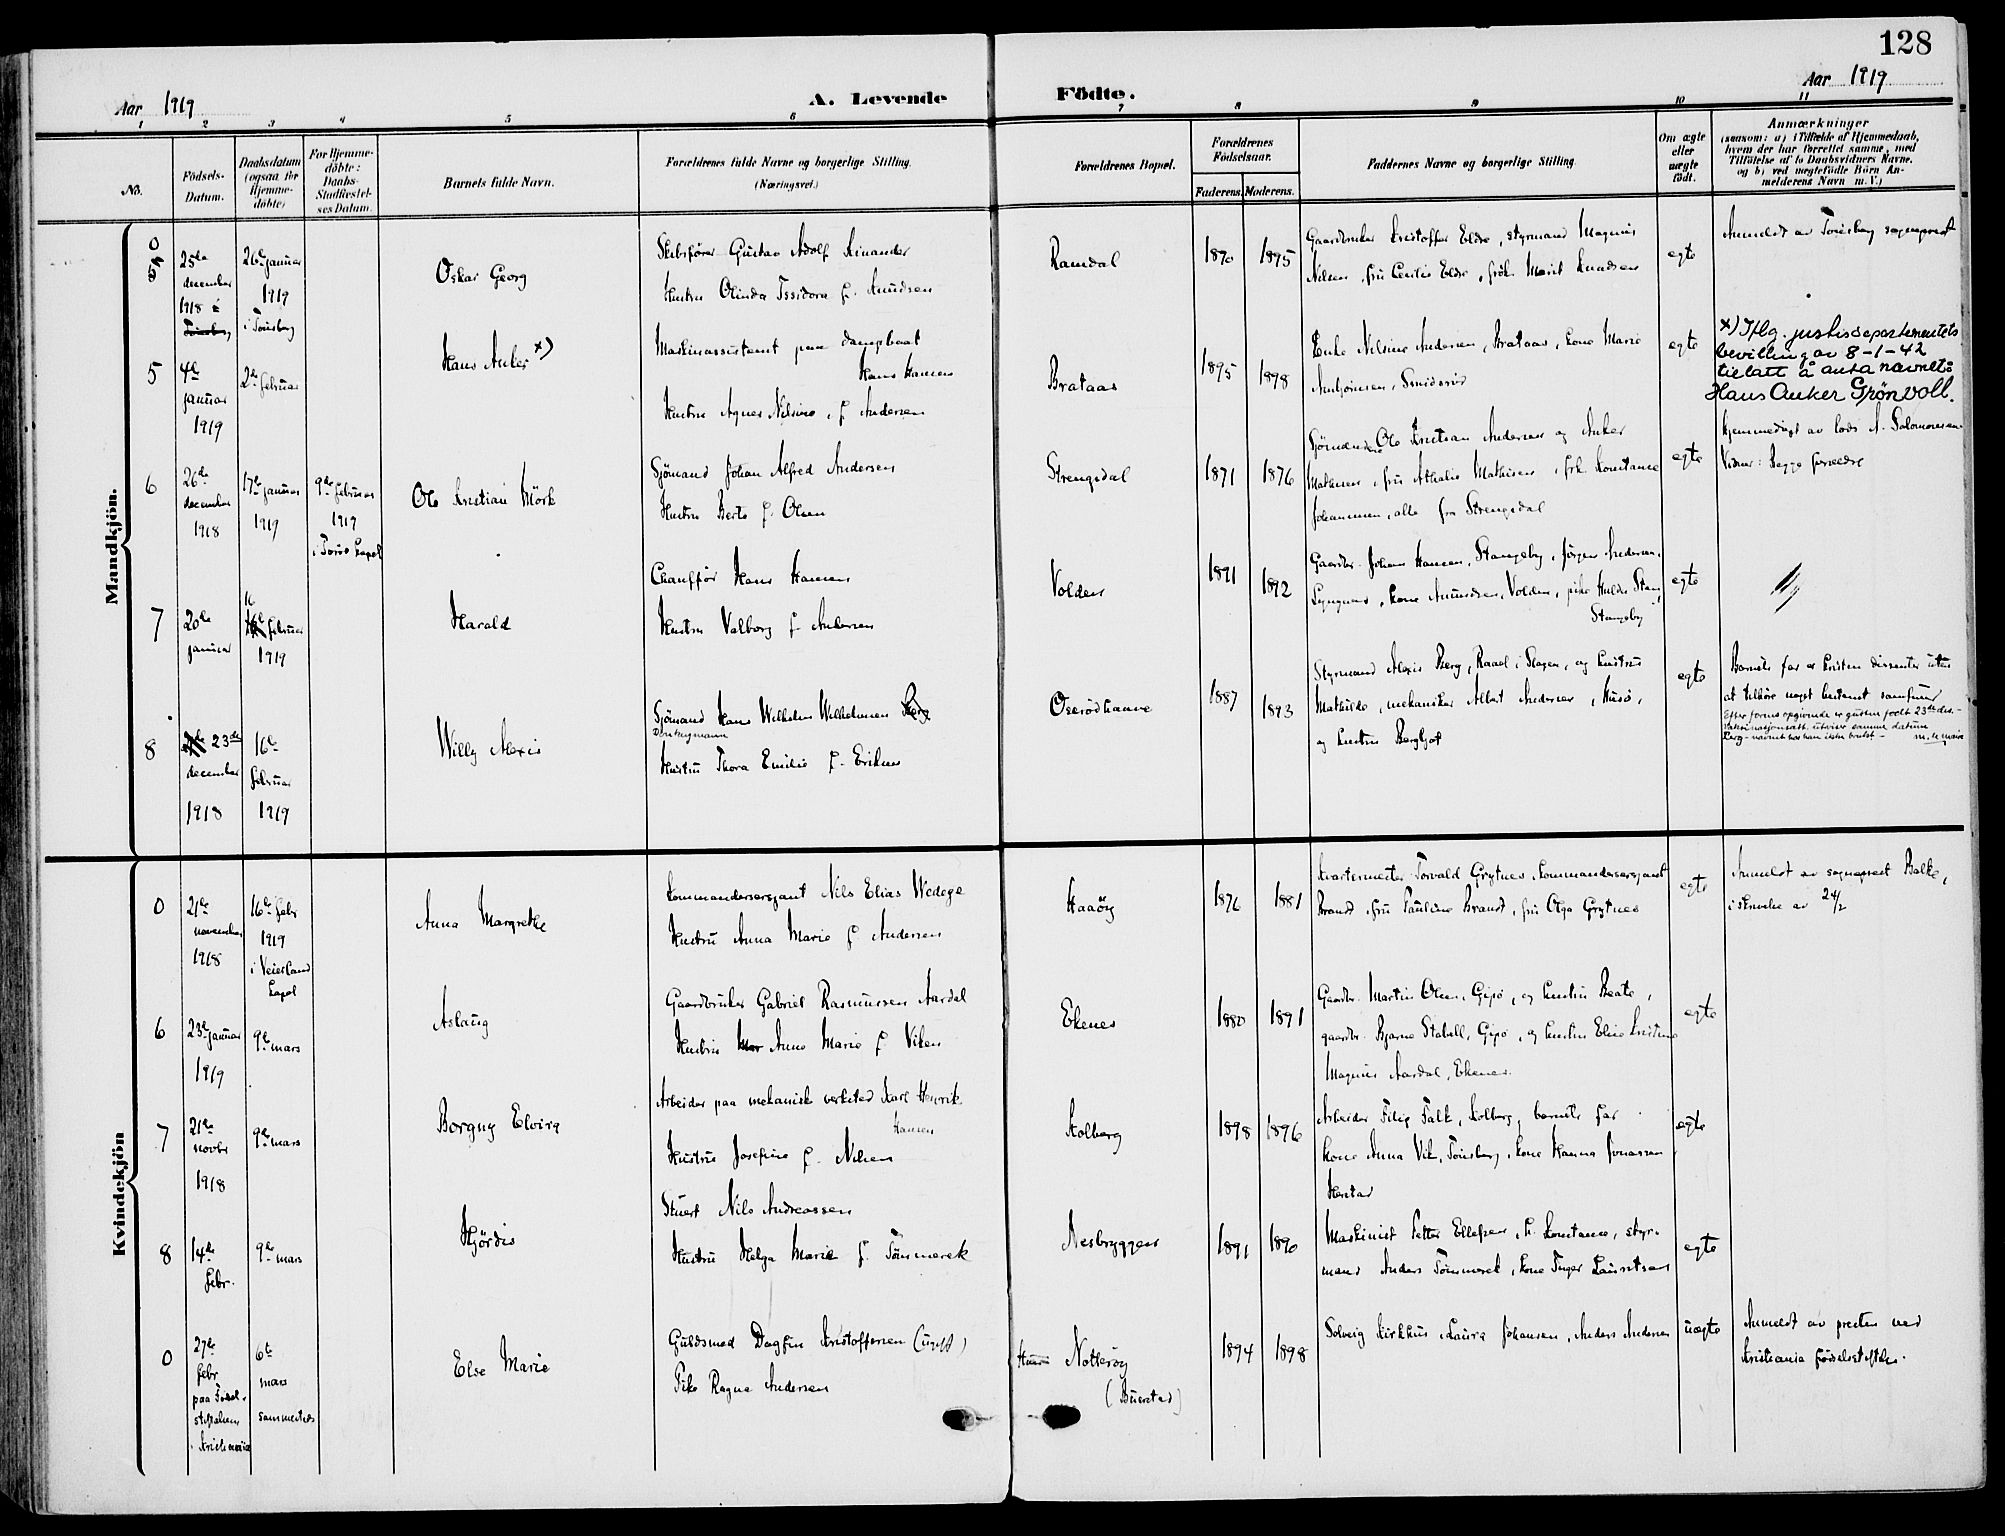 128
Aar 1919
A. Levende
Födte.
Aar 1919
1 2 3 4 5 6 7 8 9 10 11
No.
Födsels-
Datum.
Daabsdatum
(ogsaa for
Hjemme-
döbte)
For Hjemme-
döbte:
Daabs-
Stadfæstel-
ses Datum.
Barnets fulde Navn.
Forældrenes fulde Navne og borgerlige Stilling.
(Næringsvei.)
Forældrenes Bopæl.
Forældrenes
Födselsaar.
Faderens. Moderens.
Faddernes Navne og borgerlige Stilling.
Om ægte
eller
uægte
födt.
Anmærkninger
(saasom: a) i Tilfælde af Hjemmedaab,
hvem der har forrettet samme, med
Tilföielse af to Daabsvidners Navne,
og b) ved uegtefödte Börn An-
melderens Navn m. V.)
Mandkjön.
0
25de
december
1918
26de januar
1919
i Tönsberg
Oskar Georg
Skibsförer Gustav Adolf Reinander
Hustru Olinda Issidora f. Knudsen
Ramdal
1870 1895
Gaardbruker Kristoffer Eldre, styrmand Magnus
Nilsen, fru Cecilie Eldre, frök. Marit Knudsen
egte
Anmeldt av Tönsberg sogneprest
5
4de
januar
1919
2de februar
Hans Anker x)
Maskinassistent paa dampbaat
Hans Hansen
Hustru Agnes Nilsine, f. Andersen
Brataas
1895 1898
Enke Nilsine Andersen, Brataas, kone Marie
egte
x) Iflg. justisdepartementets
bevilling av 8-1-42
tillatt å anta navnet:
Hans Anker Grönvoll.
6
26de
december
1918
17de januar
1919
9de februar
1919
Ole Kristian Mörk
Sjömand Johan Alfred Andersen
Hustru Berte f. Olsen
Strengsdal
1871 1876
Sjömænd Ole Kristian Andersen og Anker
Mathisen, fru Athalie Mathisen, frk. Konstance
Johannesen, alle fra Strengsdal
egte
Hjemmedöpt av lods A. Salomonsen
Vidner: Begge forældre
7
20de
januar
16
februar
1919
Harald
Chaufför Hans Hansen
Hustru Valborg f. Andersen
Volden
1891 1892
Gaardbr. Johan Hansen, Stangeby, Jörgen Andersen,
kone Amundsen, Volden, pike Hulda
Stangeby
egte
8
23de
december
1918
16de
februar
1919
Willy Alexis
Sjömand Hans Wilhelm Wilhelmsen Berg
Donkeymann
Hustru Thora Emilie f. Eriksen
Oserödhaune
1887 1893
Styrmand Alexis Berg, Raael i Slagen, og hustru
Mathilde, mekaniker Albert Andersen, Husö,
og hustru Bergljot
egte
Barnets far er kristen dissenter uten
at tilhöre noget bestemt samfund
Efter farens opgivende er gutten födt 23de des.
Vaksinasjonsatt. utviser samme datum
Berg-navnet har han ikke brukt -
Kvindekjön
0
21de
november
1918
16de febr
1919
i Veierland
kapel
Anna Margrethe
Kommandersersjant Nils Elias Wedege
Hustru Anna Marie f. Andersen
Haaöy
1876 1881
Kvartermester Torvald Grytnes, kommandersersjant
Brandt, fru Pauline Brandt, fru Olga Grytnes
egte
Anmeldt av sogneprest Balke,
i skrivelse av 24/2
6
23de januar
1919
9de mars
Aslaug
Gaardbruker Gabriel Rasmussen Aardal
Hustru Anne Marie f. Viken
Ekenes
1880 1891
Gaardbr. Martin Olsen, Gipö, og hustru Beate,
gaardbr. Bjarne Stabell, Gipö, og hustru Elise Kristine
Magnus Aardal, Ekenes.
egte
7
21de
novbr
1918
9de mars
Borgny Elvira
Arbeider paa mekanisk verksted Karl Henrik
Hansen
Hustru Josefine f. Nilsen
Kolberg
1898 1896
Arbeider Filip Falk, Kolberg, barnets far
kone Anna Vik, Tönsberg, kone Hanna Jonassen
egte
8
14de
febr.
9de mars
Hjördis
Stuert Nils Andreassen
Hustru Helga Marie f. Tönmerek
Nesbryggen
1891 1890
Maskinist Petter Ellefsen, h. Konstance, styr-
mand Anders Tömmerek, kone Inger Lauritsen
egte
0
27de
febr
paa Födsel-
stiftelsen
Kristiania
6te
mars
sammesteds
Else Marie
Guldsmed Dagfin Kristoffersen (ugift)
Pike Ragna Andersen
Nötteröy
(Buerstad)
1894 1898
Solveig Kirkhus, Laura Johansen, Anders Andersen
uægte
Anmeldt av presten ved
Kristiania fødselsstiftelse.